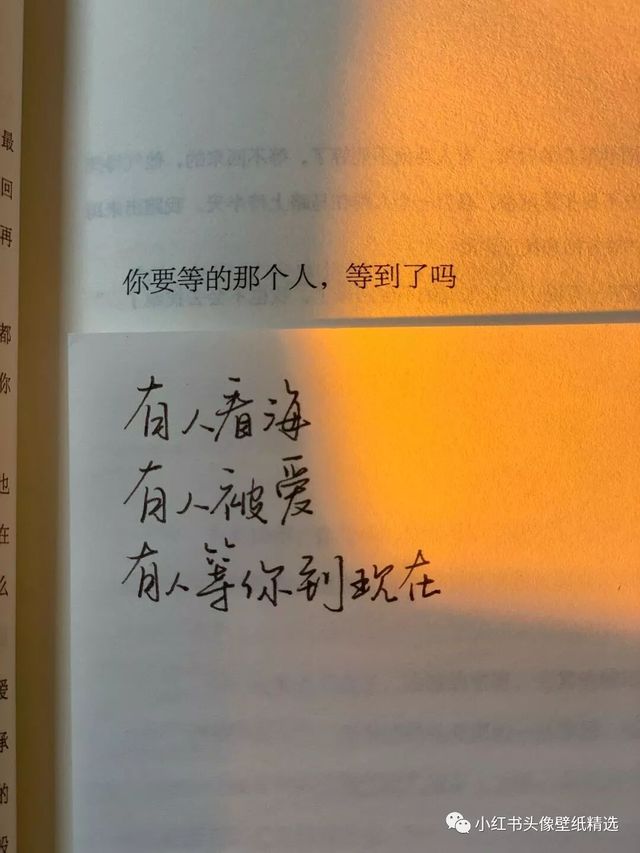 最
回
再
都
你
也
在
么
爱
承
的
你要等的那个人，等到了吗
有人看海
有人被爱
有人等你到现在
小红书头像壁纸精选